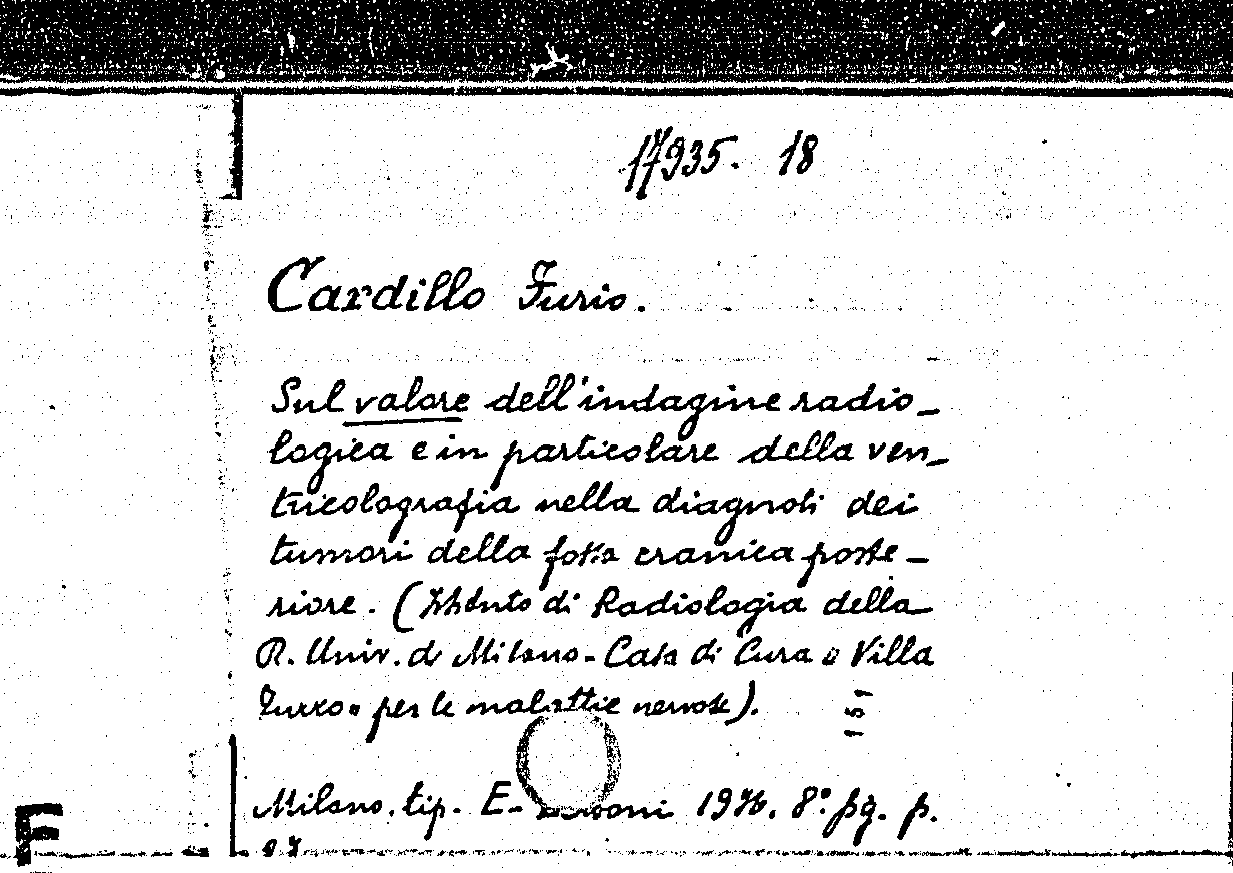 17935. 18
Cardillo Furio.
Sul valore dell'indagine radio-
logica e in particolare della ven-
tricolografia nella diagnosi dei
tumori della fossa cranica poste-
riore. (Istituto di Radiologia della
R. Univ. di Milano - Casa di Cura « Villa
Turro » per le malattie nervose).
Milano. tip. E. 8° fig. p.
F